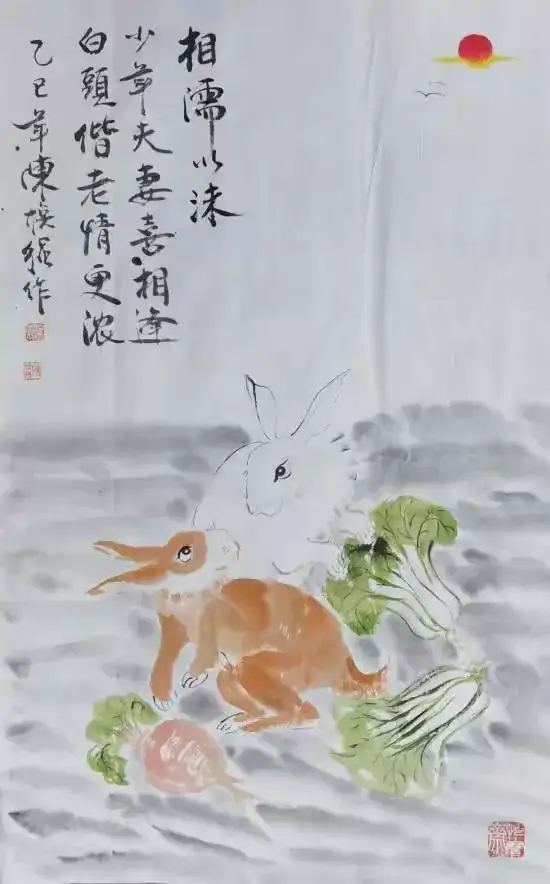 相濡以沫
少年夫妻喜相逢
白頭偕老情更浓
乙巳年陳作